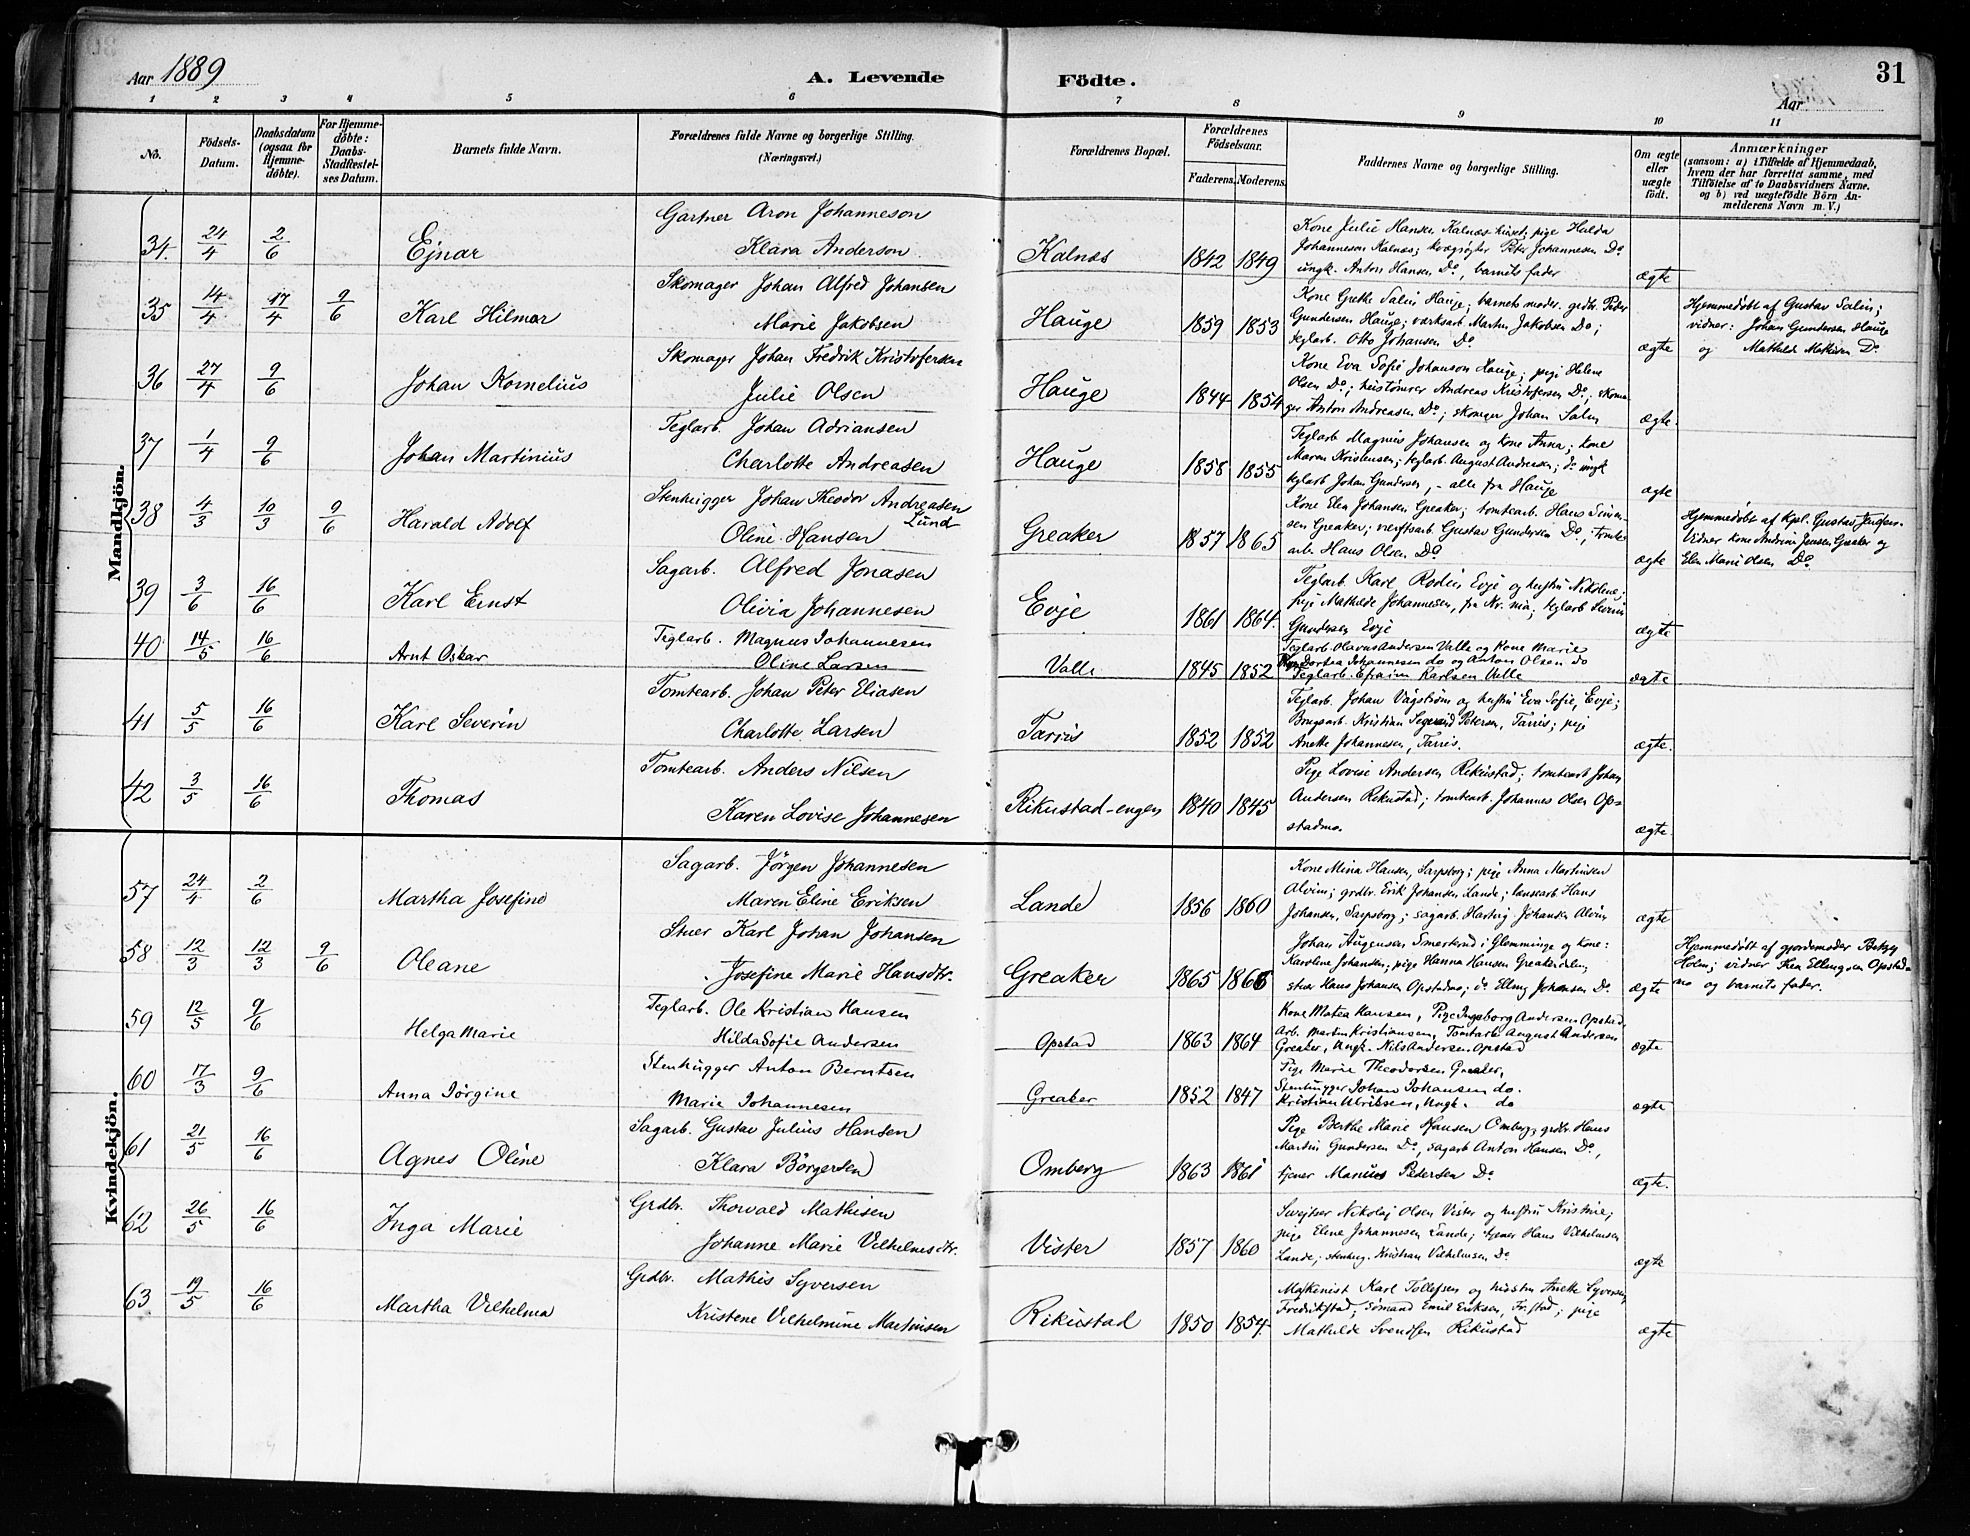 Aar 1889
A. Levende Fødte.
Aar
31
1 2 3 4 5 6 7 8 9 10 11
No.
Fødsels-
Datum.
Daabsdatum
(ogsaa for
Hjemme-
døbte).
For Hjemme-
døbte:
Daabs-
Stadfæstel-
ses Datum.
Barnets fulde Navn.
Forældrenes fulde Navne og borgerlige Stilling.
(Næringsvei.)
Forældrenes Bopæl.
Forældrenes
Fødselsaar.
Faderens. Moderens.
Faddernes Navne og borgerlige Stilling.
Om ægte
eller
uægte
født.
Anmærkninger
(saasom: a) i Tilfælde af Hjemmedaab,
hvem der har forrettet samme, med
Tilføielse af to Daabsvidners Navne.
og b) ved uægtefødte Børn An-
melderens Navn m. V.)
Mandkjøn.
34. 24/4 2/6 Ejnar
Gartner Aron Johanneson
Klara Anderson
Kalnæs 1842 1849
Kone Julie Hansen Kalnæs huset; pige Hulda
Johanneson Kalnæs; kvægrøgter Peter Johannesen Do
ungk. Anton Hansen Do, barnets fader
ægte
35 14/4 17/4 9/6 Karl Hilmar
Skomager Johan Alfred Johansen
Marie Jakobsen
Hauge 1859 1853
Kone Grethe Salin Hauge; barnets moder. grdbr. Peter
Gundersen Hauge; værksarb. Martin Jakobsen Do;
teglarb. Otto Johansen Do
ægte
Hjemmedøbt af Gustav Salin;
vidner: Johan Gundersen Hauge
og Mathilde Mathisen Do
36 27/4 9/6 Johan Kornelius
Skomager Johan Fredrik Kristofersen
Julie Olsen
Hauge 1844 1854
Kone Eva Sofie Johanson Hauge; pige Helene
Olsen Do; hustømrer Andreas Kristofersen Do; skoma-
ger Anton Andreasen Do; skomger Johan Salin
ægte.
37 1/4 9/6 Johan Martinius
Teglarb. Johan Adriansen
Charlotte Andreasen
Hauge 1858 1855
Teglarb Magnus Johansen og kone Anna; kone
Maren Kristensen; teglarb. August Andersen; do ungk
teglarb Johan Gundersen, - alle fra Hauge
ægte
38 4/3 10/3 9/6 Harald Adolf
Stenhugger Johan Theodor Andreasen
Lund
Oline Hansen
Greaker 1857 1865
Kone Elen Johansen Greaker; tomtearb. Hans Simen-
sen Greaker; værftsarb Gustav Gundersen Do; tomte-
arb. Hans Olsen Do
ægte
Hjemmedøbt af Kpl. Gustav Jensen.
Vidner kone Andrine Jensen Greaker og
Elen Marie Olsen Do
39 3/6 16/6 Karl Ernst
Sagarb. Alfred Jonasen
Olivia Johannesen
Evje 1861 1864.
Teglarb. Karl Rodin Evje og hustru Nikoline;
pige Mathilde Johannesen, fra Kr.nia; teglarb Severin
Gundersen Evje
ægte
40 14/5 16/6 Arnt Oskar
Teglarb. Magnus Johannesen
Oline Larsen
Valle 1845 1852
Teglarb. Olavus Andersen Valle og Kone Marie
Pige Dortea Johannesen do og Anton Olsen do
Teglarb. Efraim Karlsen Valle
ægte
41 5/5 16/6 Karl Severin
Tomtearb. Johan Peter Eliasen
Charlotte Larsen
Tarris 1852 1852
Teglarb. Johan Vågstrøm og hustru Eva Sofie, Evje;
Brugsarb. Kristian Segevind Petersen, Tarris; pige
Anette Johannesen, Tarris.
ægte.
42 3/5 16/6 Thomas
Tomtearb. Anders Nilsen
Karen Lovise Johannesen
Rikustad-engen 1840 1845
Pige Lovise Andersen Rikustad; tomtearb Johan
Andersen Rikustad; tomtearb. Johannes Olsen Op-
stadmo.
ægte.
Kvindekjøn.
57 24/4 2/6 Martha Josefine
Sagarb. Jørgen Johannesen
Maren Eline Eriksen
Lande 1856 1860
Kone Mina Hansen, Sarpsborg; pige Anna Martinsen
Alvim; grdbr. Erik Johansen Lande; lænsearb Hans
Johansen, Sarpsborg; sagarb. Hartvig Johansen Alvim
ægte
58 12/3 12/3 9/6 Oleane
Stuer Karl Johan Johansen
Josefine Marie Hansdtr.
Greaker 1865 1866
Johan Augensen Smertund i Glemminge og kone:
Karoline Johansen; pige Hanna Hansen Greakerdalen;
stuer Hans Johansen Opstadmo; do Elling Johansen Do.
ægte
Hjemmedøbt af gjordemoder Betzy
Holm; vidner Thea Ellingsen Opstad-
mo og barnets fader.
59 12/5 9/6 Helga Marie
Teglarb. Ole Kristian Hansen
Hilda Sofie Andersen
Opstad 1863 1864
Kone Matea Hansen, Pige Ingeborg Andersen Opstad,
Arb. Martin Kristiansen, Tomtarb. August Andersen
Greaker, Ungk. Nils Andersen Opstad
ægte
60 17/3 9/6 Anna Jørgine
Stenhugger Anton Berntsen
Marie Johannesen
Greaker 1852 1847
Pige Marie Theodorsen, Greaker,
Stenhugger Johan Johansen do.
Kristian Ulriksen, Ungk. do
ægte
61 21/5 16/6 Agnes Oline
Sagarb. Gustav Julius Hansen
Klara Børgersen
Omberg 1863 1861
Pige Berthe Marie Hansen Omberg; grdbr. Hans
Martin Gundersen Do, sagarb Anton Hansen Do,
tjener Marius Pedersen Do
ægte.
62 26/5 16/6 Inga Marie
Grdbr. Thorvald Mathisen
Johanne Marie Vilhelmsdtr.
Vister 1857 1860
Sveitser Nikolaj Olsen Vister og hustru Kristine;
pige Eline Johannesen Lande; tjener Hans Vilhelmsen
Lande; stenhug. Kristian Vilhelmsen Do
ægte
63 19/5 16/6 Martha Vilhelma
Grdbr. Mathis Syversen
Kristene Vilhelmine Martinsen
Rikustad 1850 1854.
Maskinist Karl Tollefsen og hustru Anette Syversen
Fredrikstad; sømand Emil Eriksen, Fr.stad; pige
Mathilde Svendsen Rikustad
ægte